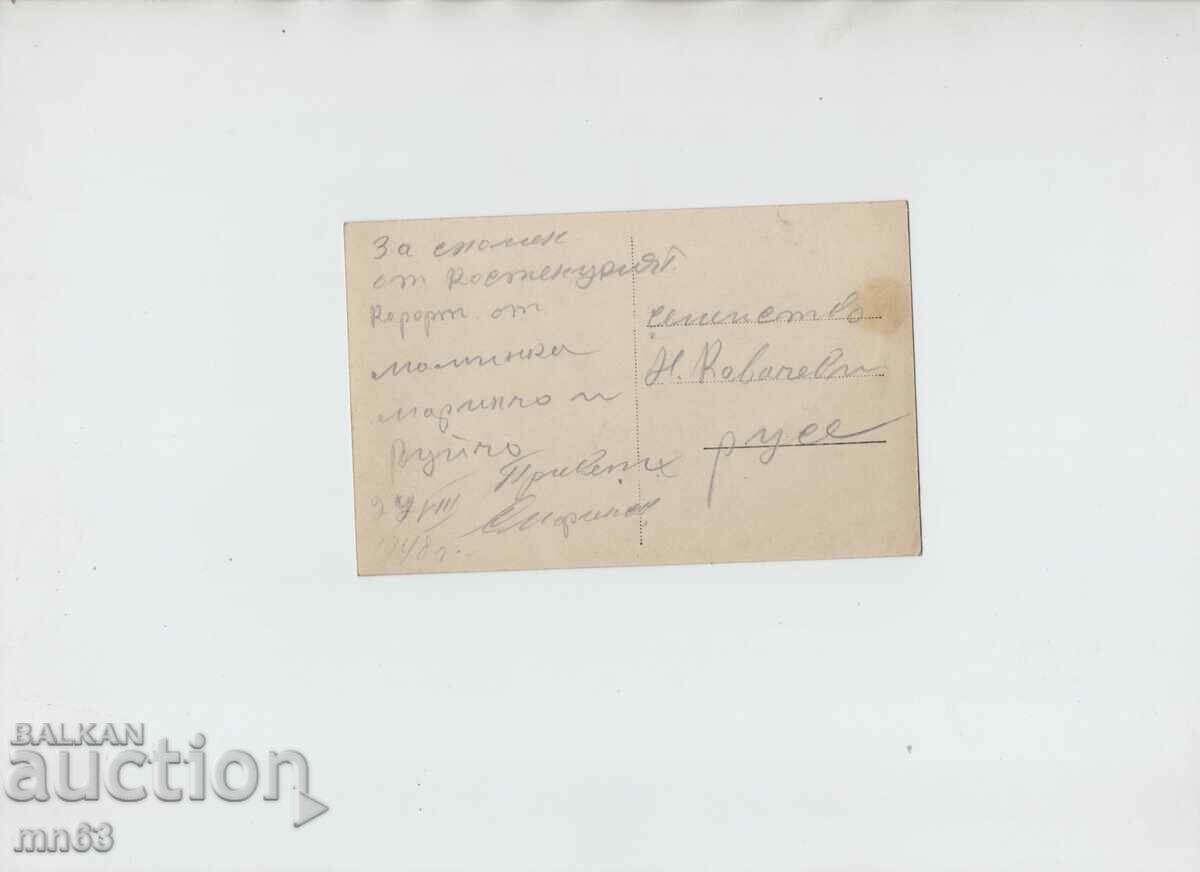 За спомен
от Костенурият
Курорт. от
маминка
Маринчо и
Вуйчо
Привет
27 VIII
1948 г.
Семейство
Н. Ковачеви
Русе
BALKAN
auction
mn63